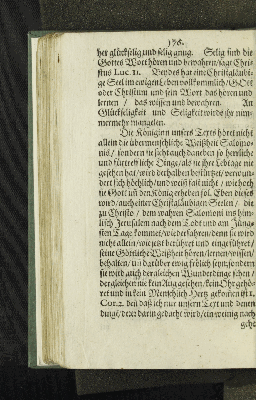 176.
her glückselig und selig gnug. Selig sind die
Gottes Wort hören und bewahren / sagt Chri-
stus Luc. 11. Beydes hat eine Christgläubi-
ge Seel im ewigen Leben vollkommlich / GOtt
oder Christum und sein Wort das hören und
lernen / das wissen und bewahren. An
Glückseligkeit und Seligkeit wirds ihr nim-
mermehr mangeln.
Die Königinn unsers Texts höret nicht
allein die übermenschliche Weißheit Salomo-
nis / sondern sie sieht auch daneben so herrliche
und fürtreffliche Dinge / als sie ihr Lebtage nit
gesehen hat / wird derhalben bestürtzet / verwun-
dert sich höchlich / und weiß fast nicht / wie hoch
sie Gott uñ den König erheben sol. Eben dieses
wird / auch einer Christglaubigen Seelen / die
zu Christo / dem wahren Salomoni ins himm-
lisch Jerusalem nach dem Todt und am Jüng-
sten Tage kommet / wiederfahren / denn sie wird
nicht allein / wie jetzt berühret und eingeführet /
seine Göttliche Weißheit hören / lernen / wissen /
behalten / und darüber ewig frölich seyn: sondern
sie wird auch dergleichen Wunderdinge sehen /
dergleichen nie kein Aug gesehen / kein Ohr gehö-
ret und in kein Menschlich Hertz gekommen ist 1.
Cor. 2. deñ daß ich nur unsern Text und denen
dinge / derer darin gedacht wird / ein wenig nach
gehe